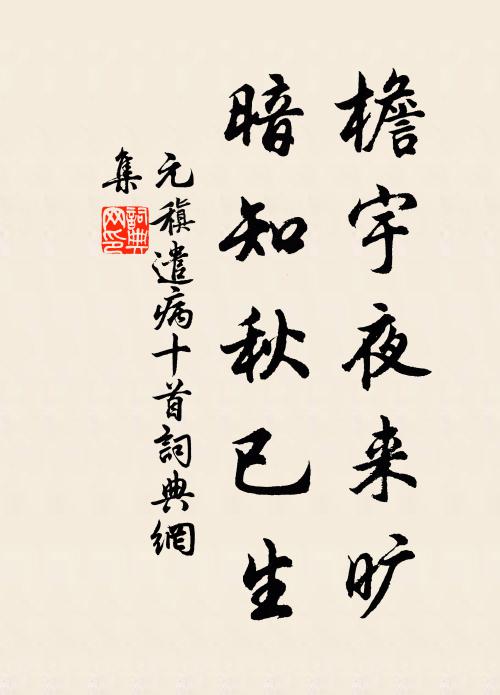 檐宇夜来旷
暗知秋已生
元稹遣病十首詞典網
集
詞典
网印